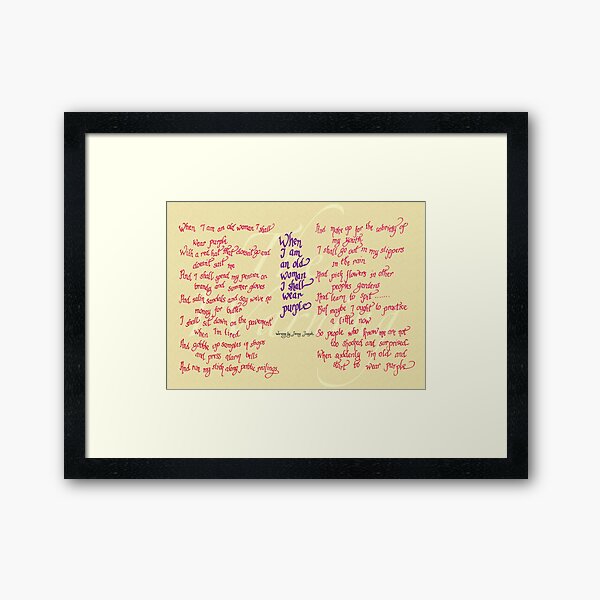 When I am an old woman I shall
wear purple
With a red hat that doesn't go and
doesn't suit me
And I shall spend my pension on
brandy and summer gloves
And satin sandals and say we've no
money for butter
I shall sit down on the pavement
when I'm tired
And gobble up samples in shops
and press alarm bells
And run my stick along public railings
When
I am
an old
woman
I shall
wear
purple
Warning by Jenny Joseph
And make up for the sobriety of
my youth
I shall go out in my slippers
in the rain
And pick flowers in other
peoples gardens
And learn to spit ......
But maybe I ought to practice
a little now
So people who know me are not
too shocked and surprised
When suddenly I'm old and
start to wear purple